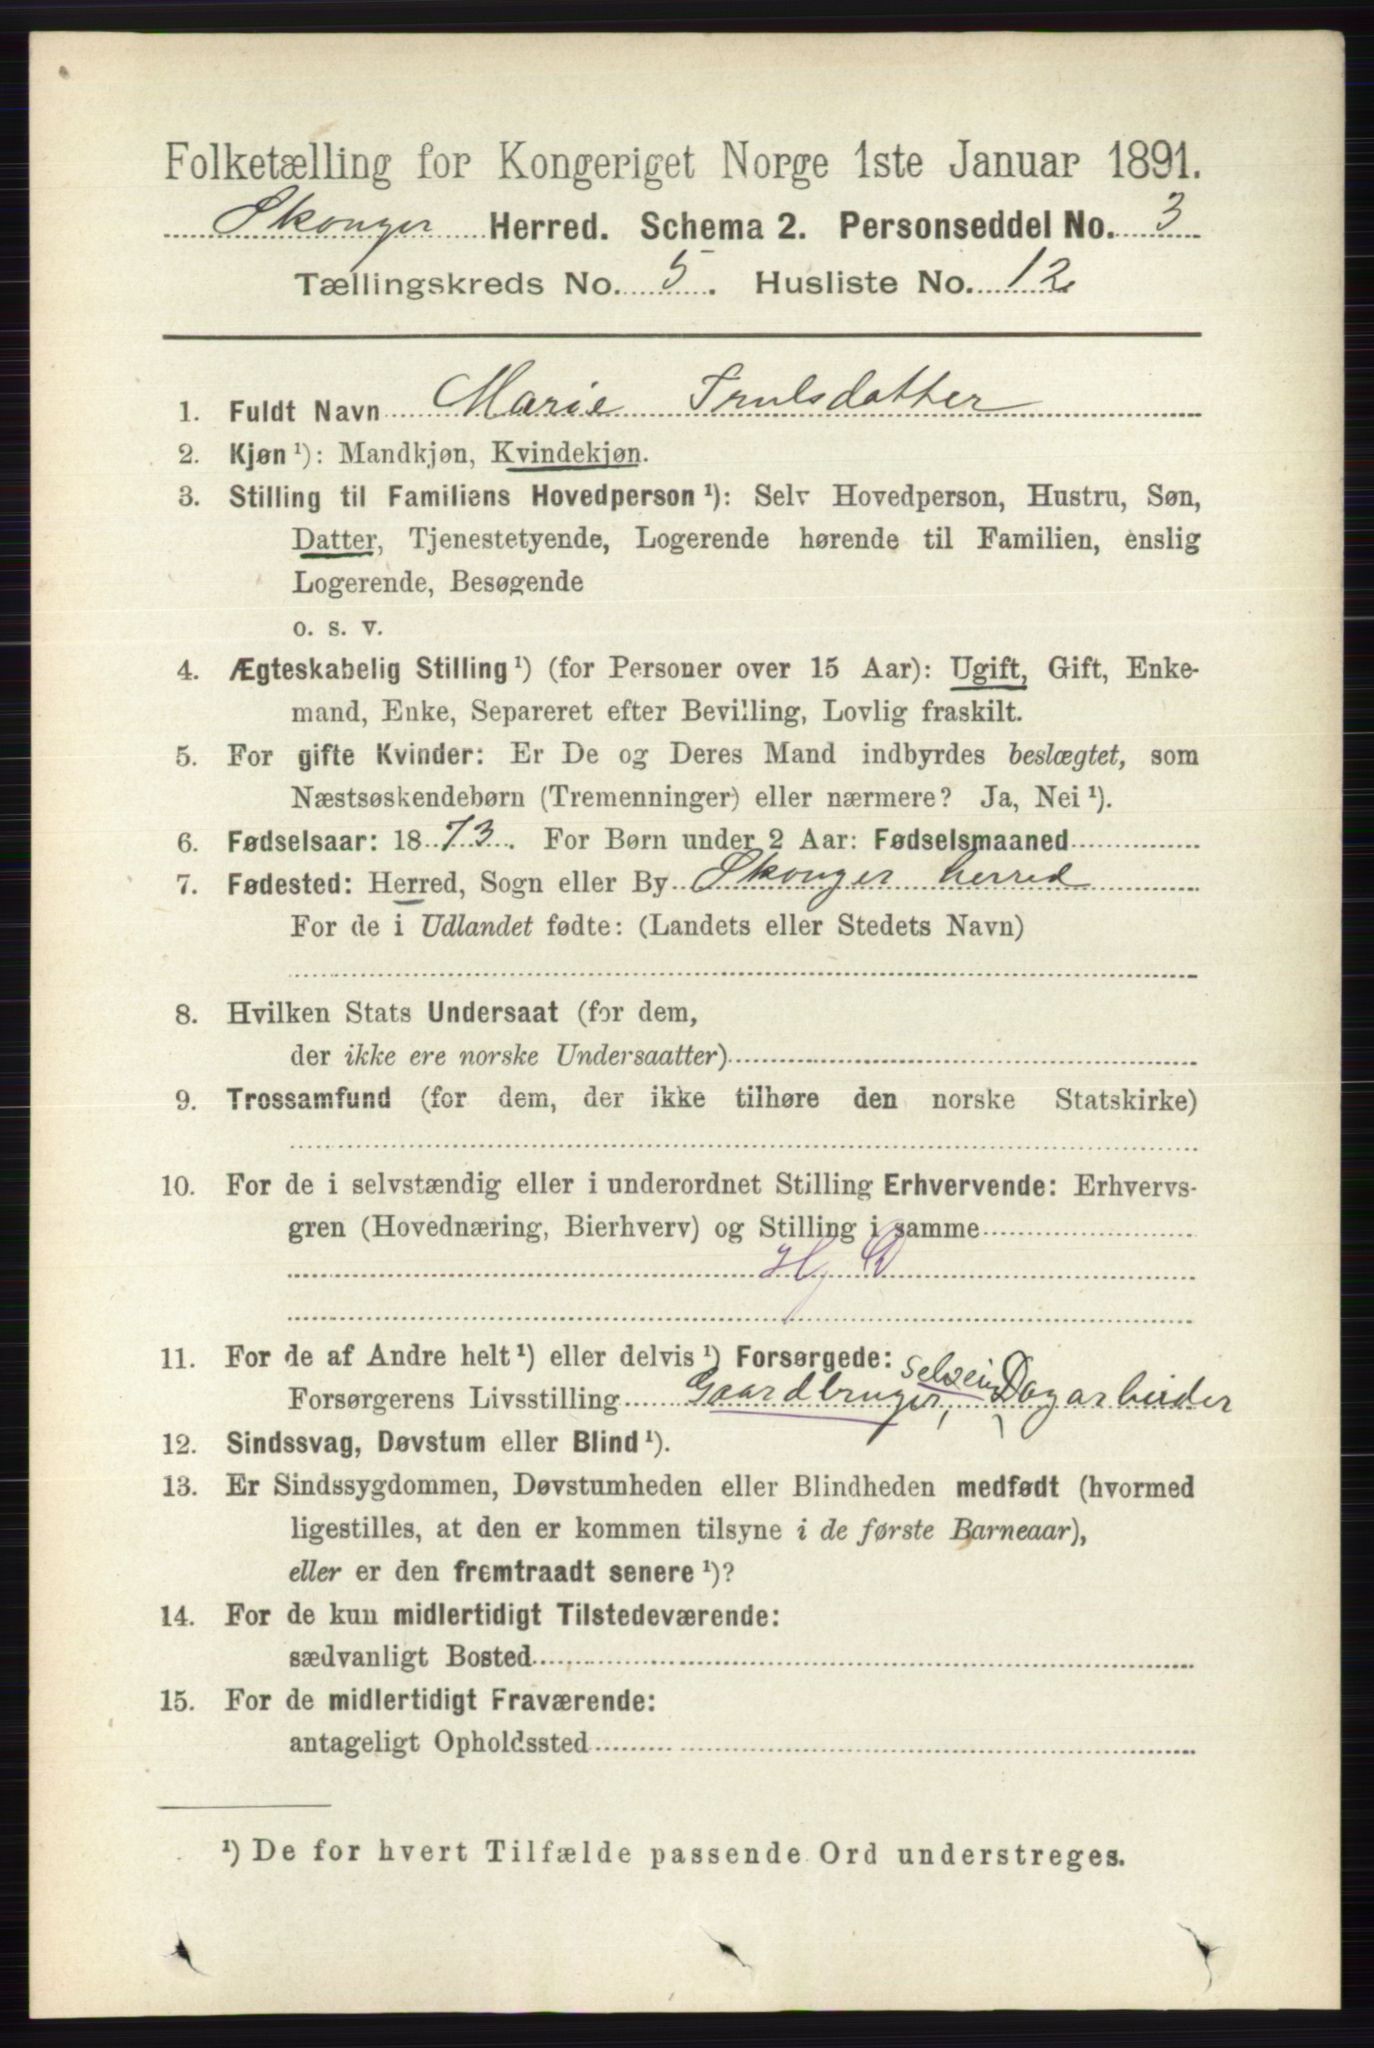 Folketælling for Kongeriget Norge 1ste Januar 1891.
Skouger Herred. Schema 2. Personseddel No. 3
Tællingskreds No. 5. Husliste No. 12
1. Fuldt Navn Marie Trulsdatter
2. Kjøn ¹): Mandkjøn, Kvindekjøn.
3. Stilling til Familiens Hovedperson ¹): Selv Hovedperson, Hustru, Søn,
Datter, Tjenestetyende, Logerende hørende til Familien, enslig
Logerende, Besøgende
o. s. v.
4. Ægteskabelig Stilling ¹) (for Personer over 15 Aar): Ugift, Gift, Enke-
mand, Enke, Separeret efter Bevilling, Lovlig fraskilt.
5. For gifte Kvinder: Er De og Deres Mand indbyrdes beslægtet, som
Næstsøskendebørn (Tremenninger) eller nærmere? Ja, Nei ¹).
6. Fødselsaar: 1873. For Børn under 2 Aar: Fødselsmaaned
7. Fødested: Herred, Sogn eller By Skouger herred
For de i Udlandet fødte: (Landets eller Stedets Navn)
8. Hvilken Stats Undersaat (for dem,
der ikke ere norske Undersaatter)
9. Trossamfund (for dem, der ikke tilhøre den norske Statskirke)
10. For de i selvstændig eller i underordnet Stilling Erhvervende: Erhvervs-
gren (Hovednæring, Bierhverv) og Stilling i samme
11. For de af Andre helt ¹) eller delvis ¹) Forsørgede:
Forsørgerens Livsstilling Gaardbruger, Selvei Dagarbeider
12. Sindssvag, Døvstum eller Blind ¹).
13. Er Sindssygdommen, Døvstumheden eller Blindheden medfødt (hvormed
ligestilles, at den er kommen tilsyne i de første Barneaar),
eller er den fremtraadt senere ¹)?
14. For de kun midlertidigt Tilstedeværende:
sædvanligt Bosted
15. For de midlertidigt Fraværende:
antageligt Opholdssted
¹) De for hvert Tilfælde passende Ord understreges.